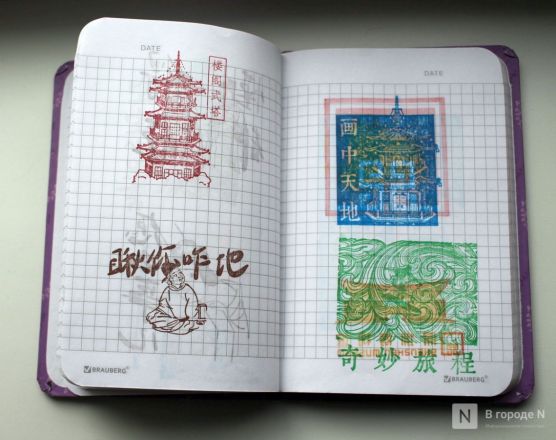 DATE
楼阁式塔
瞅你咋地
BRAUBERG®
DATE
画中天地
奇妙旅程
BRAUBERG®
В городе N